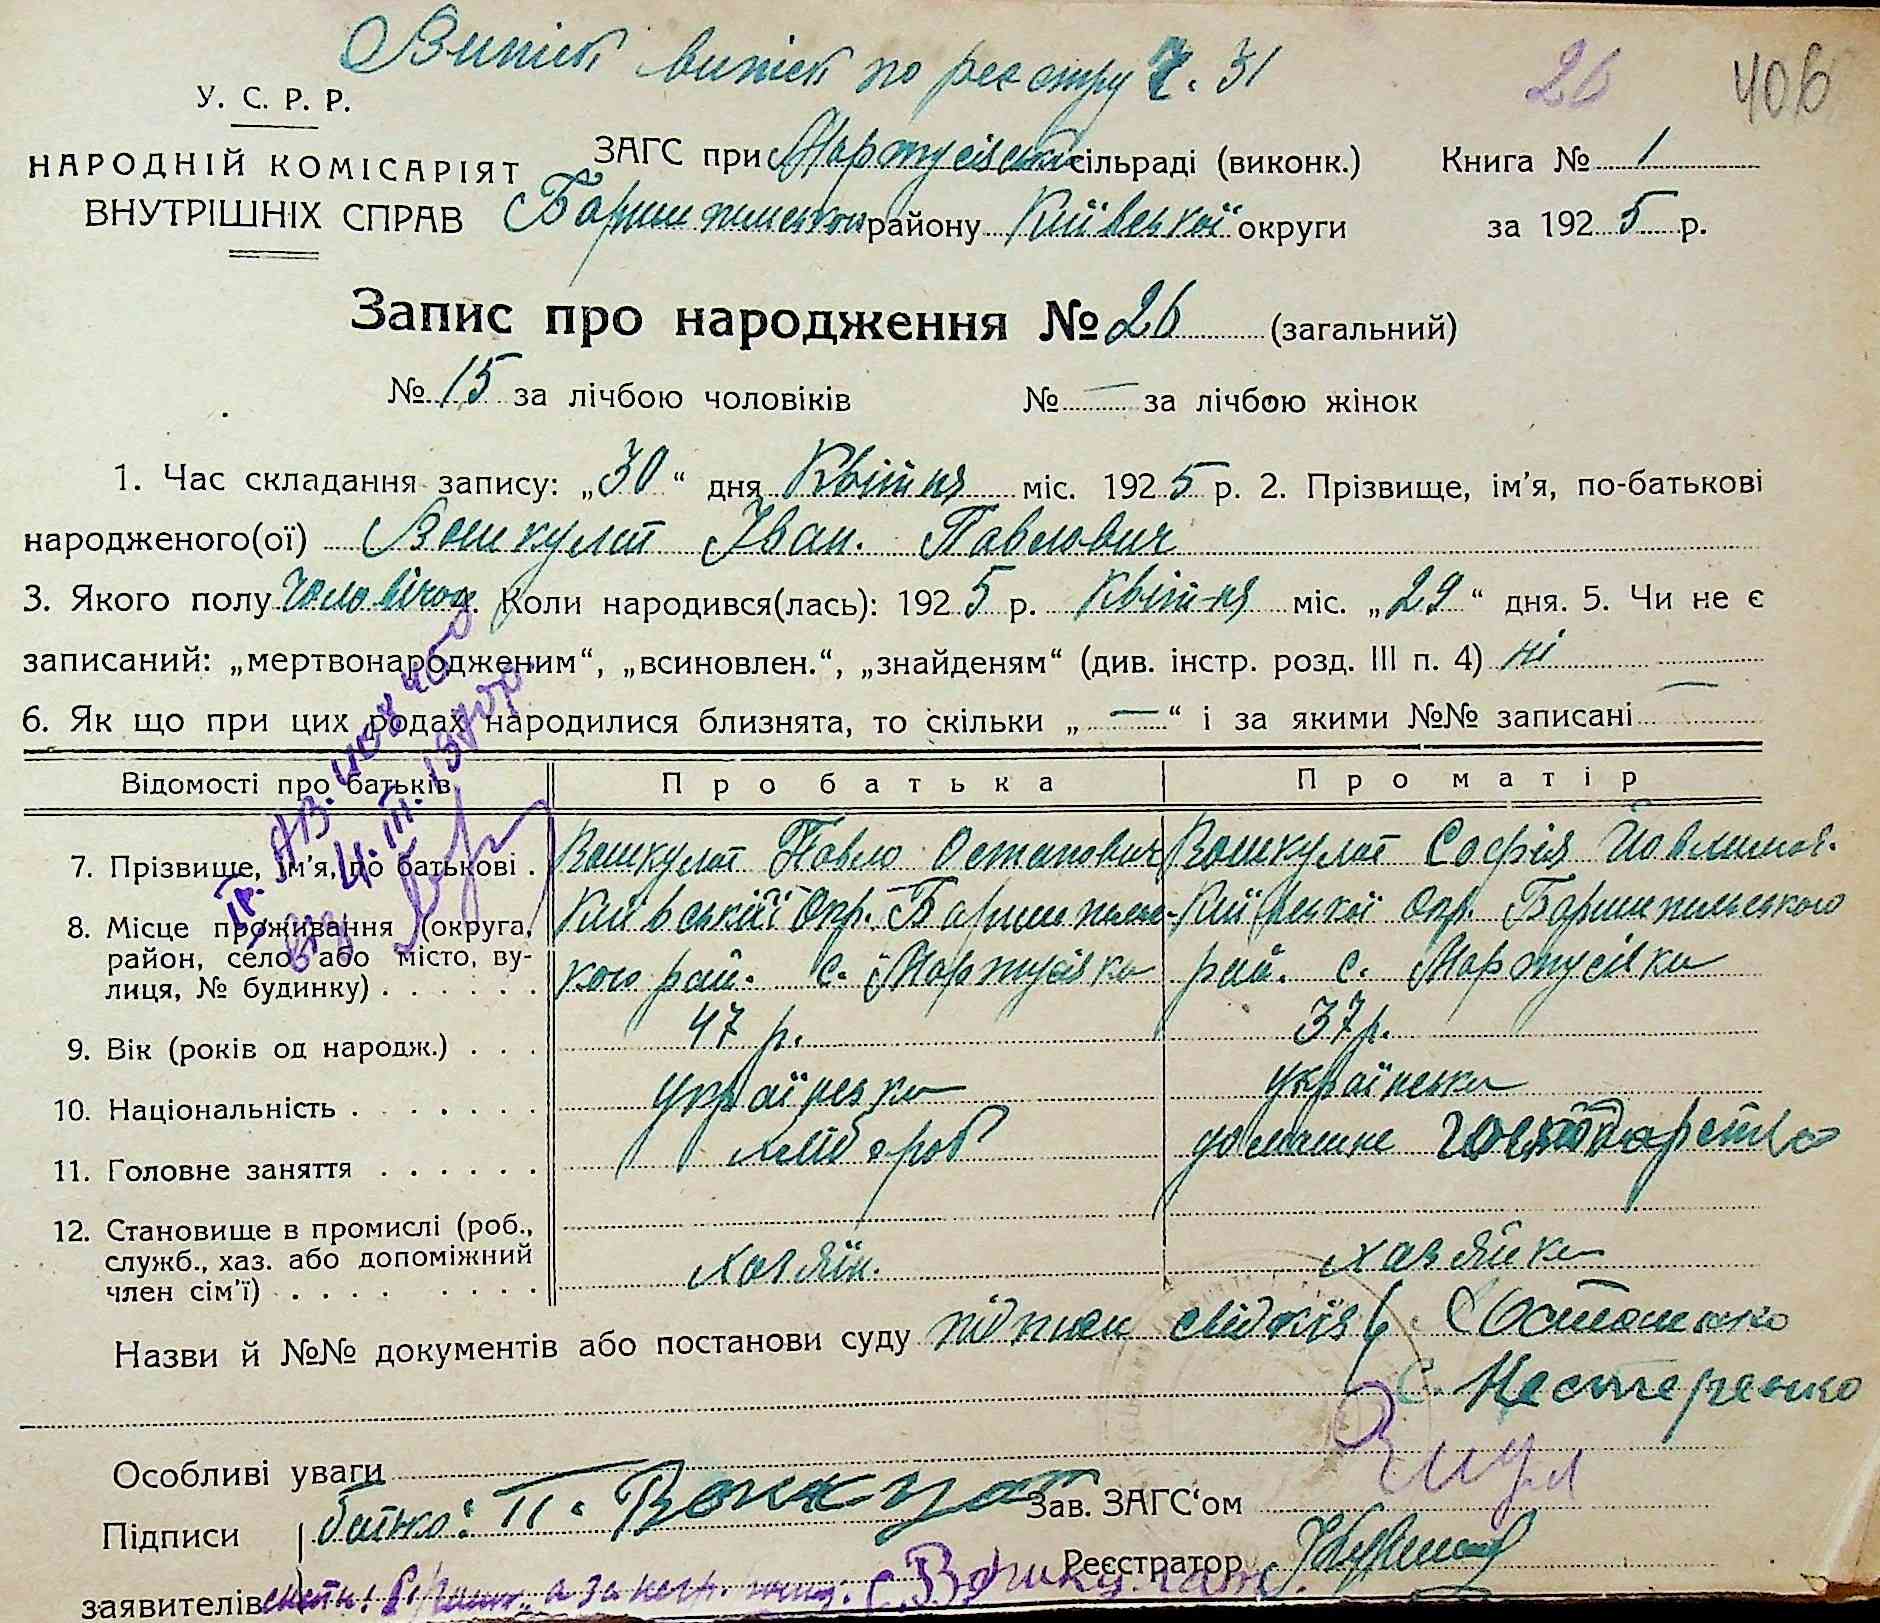 Витяг витяг по реєстру Ч. 31
26 406
У. С. Р. Р.
НАРОДНІЙ КОМІСАРІЯТ
ВНУТРІШНІХ СПРАВ
ЗАГС при Мартусівській сільраді (виконк.) Книга № 1
Баришпільського району Київської округи за 1925 р.
Запис про народження № 26 (загальний)
№ 15 за лічбою чоловіків № — за лічбою жінок
1. Час складання запису: „30“ дня Квітня міс. 1925 р. 2. Прізвище, ім'я, по-батькові
народженого(ої) Вошкулат Іван. Павлович
3. Якого полу Чоловічого 4. Коли народився(лась): 1925 р. Квітня міс. „29“ дня. 5. Чи не є
записаний: „мертвонародженим“, „всиновлен.“, „знайденям“ (див. інстр. розд. III п. 4) ні
6. Як що при цих родах народилися близнята, то скільки „—“ і за якими №№ записані —
Відомості про батьків Про батька Про матір
7. Прізвище, ім'я, по батькові . Вошкулат Павло Остапович Вошкулат Софія
8. Місце проживання (округа, район, село або місто, вулиця, № будинку) . . . . . . Київської Окр. Баришпільського рай. с. Мартусівка Київської Окр. Баришпільського рай. с. Мартусівка
9. Вік (років од народж.) . . . 47 р. 37 р.
10. Національність . . . . . . . українська українська
11. Головне заняття . . . . . . хлібороб домашнє господарство
12. Становище в промислі (роб., служб., хаз. або допоміжний член сім'ї) . . . . . . . . хазяїн. хазяйка
Назви й №№ документів або постанови суду підписи свідків С. Осташенко
С. Нестеренко
Особливі уваги
Підписи батько: П. Вошкулат Зав. ЗАГС'ом
Реєстратор
заявителів